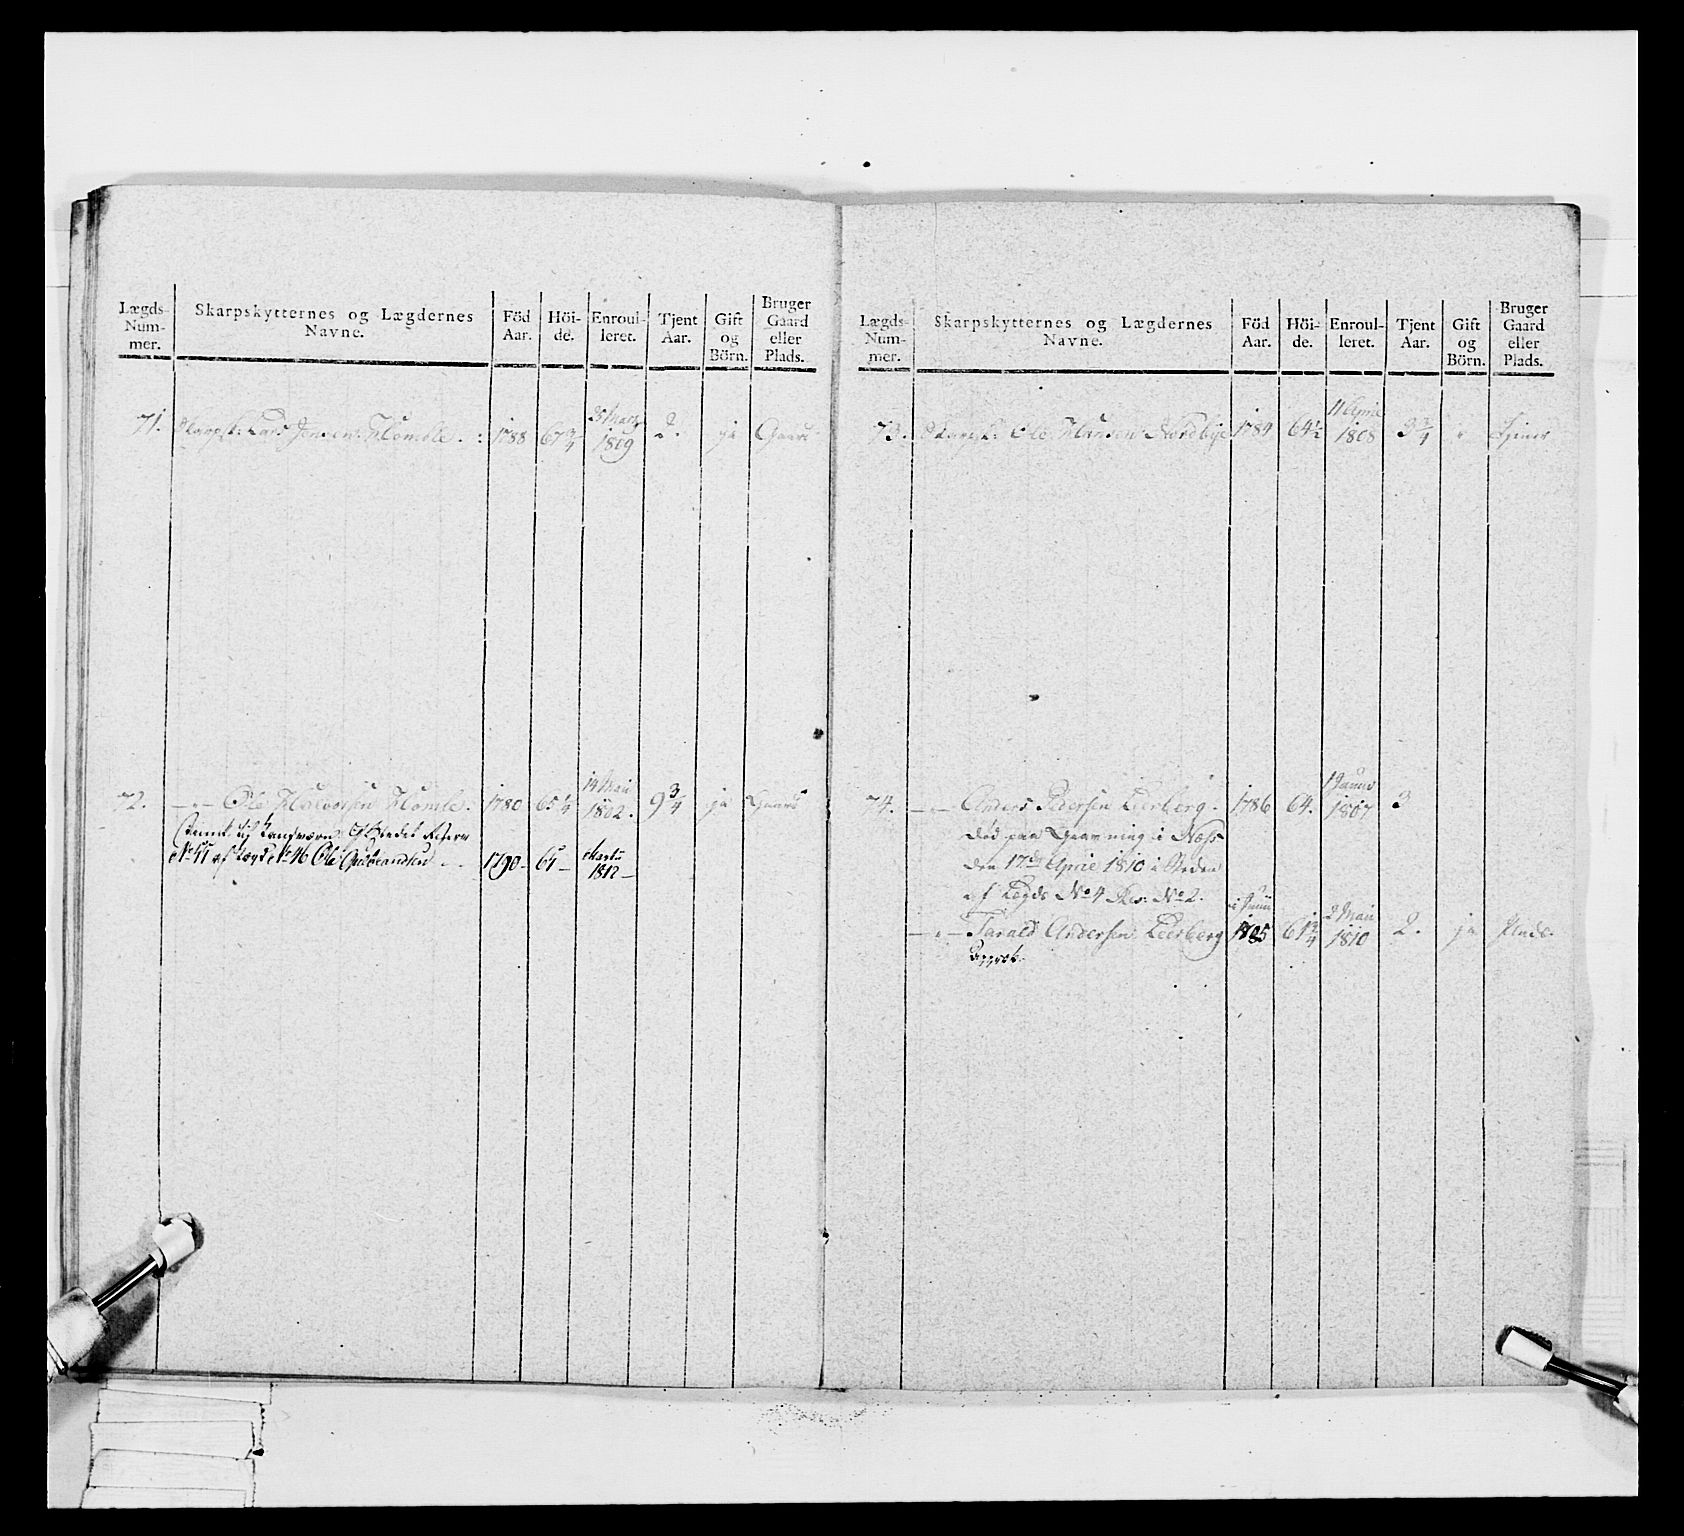 Lægds-
Num-
mer.
Skarpskytternes og Lægdernes
Navne.
Föd
Aar.
Höi-
de.
Enroul-
leret.
Tjent
Aar.
Gift
og
Börn.
Bruger
Gaard
eller
Plads.
71. Skarpsk: Lars Jensen Homble. 1788 67 3/4 25 Marz 1809 2. ja Gaard
72. — " — Ole Halvorsen Homle. 1780 65 1/4 14 Mai 1802. 9 3/4 ja Gaard
No 41 af Lægd No 46 Ole Gulbrandsen 1790 — 61 — Martii 1812 —
Lægds-
Num-
mer.
Skarpskytternes og Lægdernes
Navne.
Föd
Aar.
Höi-
de.
Enroul-
leret.
Tjent
Aar.
Gift
og
Börn.
Bruger
Gaard
eller
Plads.
73. Skarpsk: Ole Hansen Nordbye 1784 64 1/2 11 April 1808 3 3/4 " tjener
74. — " — Anders Pedersen Leerberg. 1786 64. 1 Junii 1807 3
död paa Gravning i Næss
den 17de April 1810 i Steden
af Lægds No 4 Res: No 2.
— " — Tarald Andersen Leerberg 1785 61 3/4 2 Mai 1810 2. ja Plads.
Approb.